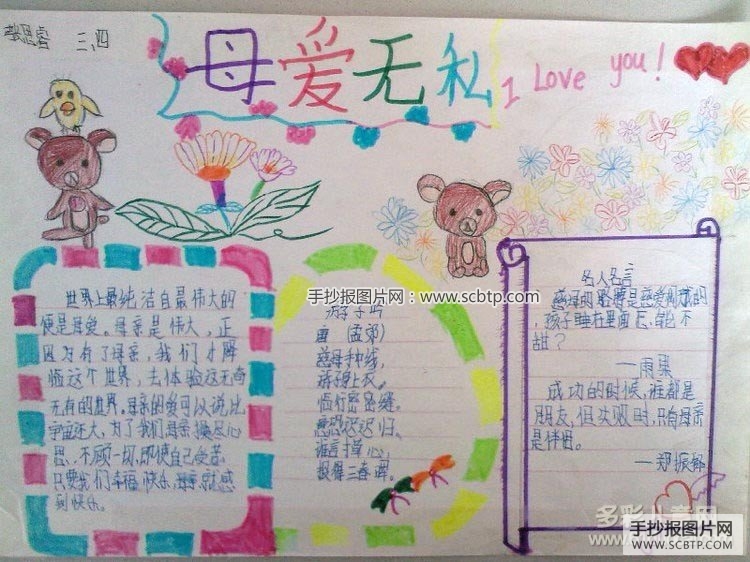 三、四
母爱无私
I Love you!
世界上最纯洁自最伟大的
便是母爱。母亲是伟大，正
因为有了母亲，我们才降
临这个世界，去体验这无奇
无有的世界。母亲的爱可以说比
宇宙还大，为了我们母亲操尽心
思，不顾一切，即使自己受苦
只要我们幸福、快乐，母亲就感
到快乐。
手抄报图片网：www.scbtp.com
游子吟
唐
慈母手中线，
游子身上衣。
临行密密缝，
意恐迟迟归。
谁言寸草心，
报得三春晖。
名人名言
慈母的胳膊是慈爱构成的
，孩子睡在里面怎能不
甜？
——雨果
成功的时候，谁都是
朋友，但失败时，只有母亲
是伴侣。
——郑振铎
多彩儿童网
手抄报图片网
WWW.SCBTP.COM